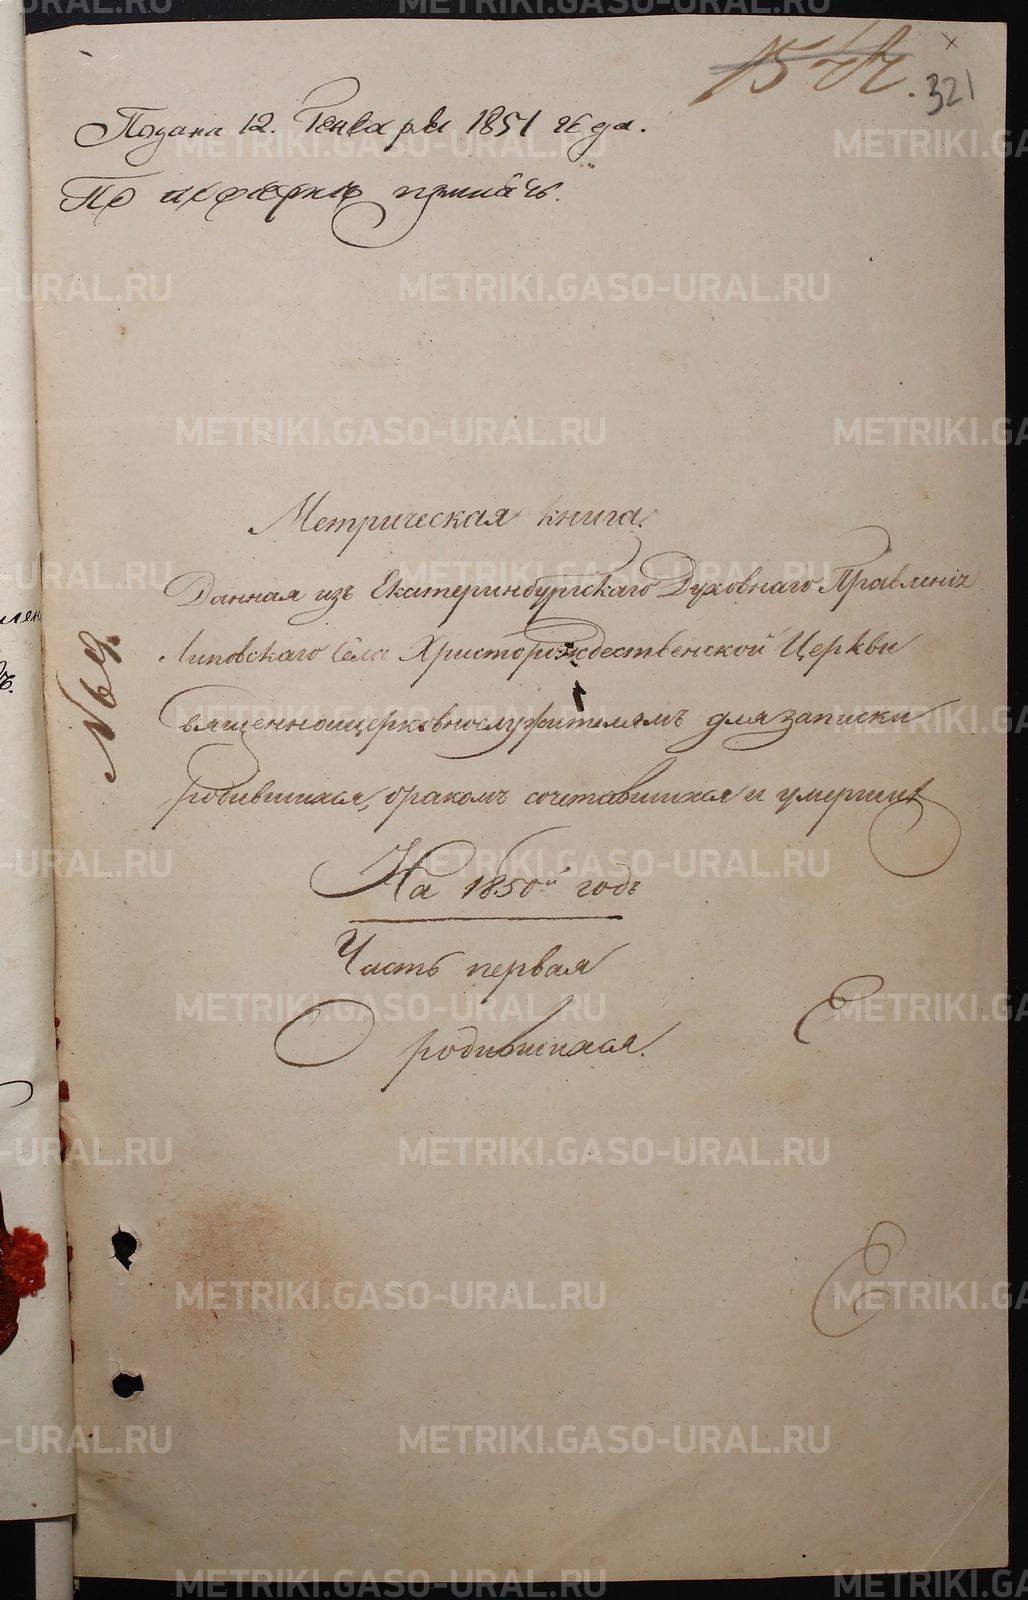 321
Подана 12. Генваря 1851 года.
По
Метрическая книга.
Данная изъ Екатеринбургскаго Духовнаго Правленія
Липовскаго Села Христорождественской Церкви
священноицерковнослужителямъ для записки
родившихся, бракомъ сочетавшихся и умершихъ
На 1850й годъ
Часть первая
О родившихся.
METRIKI.GASO-URAL.RU